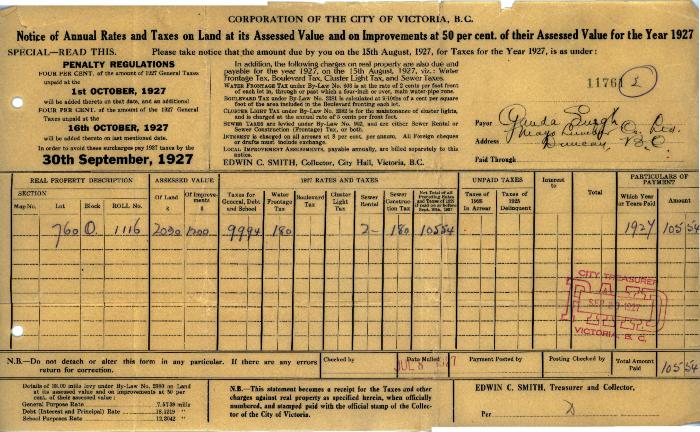 CORPORATION OF THE CITY OF VICTORIA, B.C.
Notice of Annual Rates and Taxes on Land at its Assessed Value and on Improvements at 50 per cent. of their Assessed Value for the Year 1927
SPECIAL—READ THIS. Please take notice that the amount due by you on the 15th August, 1927, for Taxes for the Year 1927, is as under:
PENALTY REGULATIONS
FOUR PER CENT. of the amount of 1927 General Taxes
unpaid at the
1st OCTOBER, 1927
will be added thereto on that date, and an additional
FOUR PER CENT. of the amount of the 1927 General
Taxes unpaid at the
16th OCTOBER, 1927
will be added thereto on last mentioned date.
In order to avoid these surcharges pay 1927 taxes by the
30th September, 1927
In addition, the following charges on real property are also due and
payable for the year 1927, on the 15th August, 1927, viz.: Water
Frontage Tax, Boulevard Tax, Cluster Light Tax, and Sewer Taxes.
WATER FRONTAGE TAX under By-Law No. is at the rate of 2 cents per foot
of each lot in, through or past which a four-inch or over, main water-pipe runs.
BOULEVARD TAX under By-Law No. is calculated at of a cent per square
foot of the area included in the Boulevard fronting each lot.
CLUSTER LIGHT TAX under By-Law No. is for the maintenance of cluster lights,
and is charged at the annual rate of 5 cents per front foot.
SEWER TAXES are levied under By-Law No. and are either Sewer Rental or
Sewer Construction (Frontage) Tax, or both.
INTEREST is charged on all arrears at 8 per cent. per annum. All Foreign cheques
or drafts must include exchange.
LOCAL IMPROVEMENT ASSESSMENTS, payable annually, are billed separately to this
notice.
EDWIN C. SMITH, Collector, City Hall, Victoria, B.C.
11761
Payor Ganda Singh
Mayo Lumber Co. Ltd.
Address Duncan, B.C.
Paid Through
REAL PROPERTY DESCRIPTION ASSESSED VALUE 1927 RATES AND TAXES UNPAID TAXES Interest to Total PARTICULARS OF PAYMENT
SECTION
Map No. Lot Block ROLL NO. Of Land $ Of Improvements $ Taxes for General, Debt and School Water Frontage Tax Boulevard Tax Cluster Light Tax Sewer Rental Sewer Construction Tax Taxes of 1926 In Arrear Taxes of 1925 Delinquent Which Year or Years Paid Amount
760 O. 1116 2030 1200 9994 180 2- 180 10554 1927 10554
CITY TREASURER
PAID
SEP 1927
VICTORIA, B.C.
N.B.—Do not detach or alter this form in any particular. If there are any errors
return for correction.
Checked by Date Mailed JUL 8 1927 Payment Posted by Posting Checked by Total Amount Paid 10554
Details of 38.00 mills levy under By-Law No. on Land
at its assessed value and on improvements at 50
per cent. of their assessed value:
General Purpose Rate mills
Debt (Interest and Principal) Rate "
School Purposes Rate "
N.B.—This statement becomes a receipt for the Taxes and other
charges against real property as specified herein, when officially
numbered, and stamped paid with the official stamp of the Collector
of the City of Victoria.
EDWIN C. SMITH, Treasurer and Collector,
Per